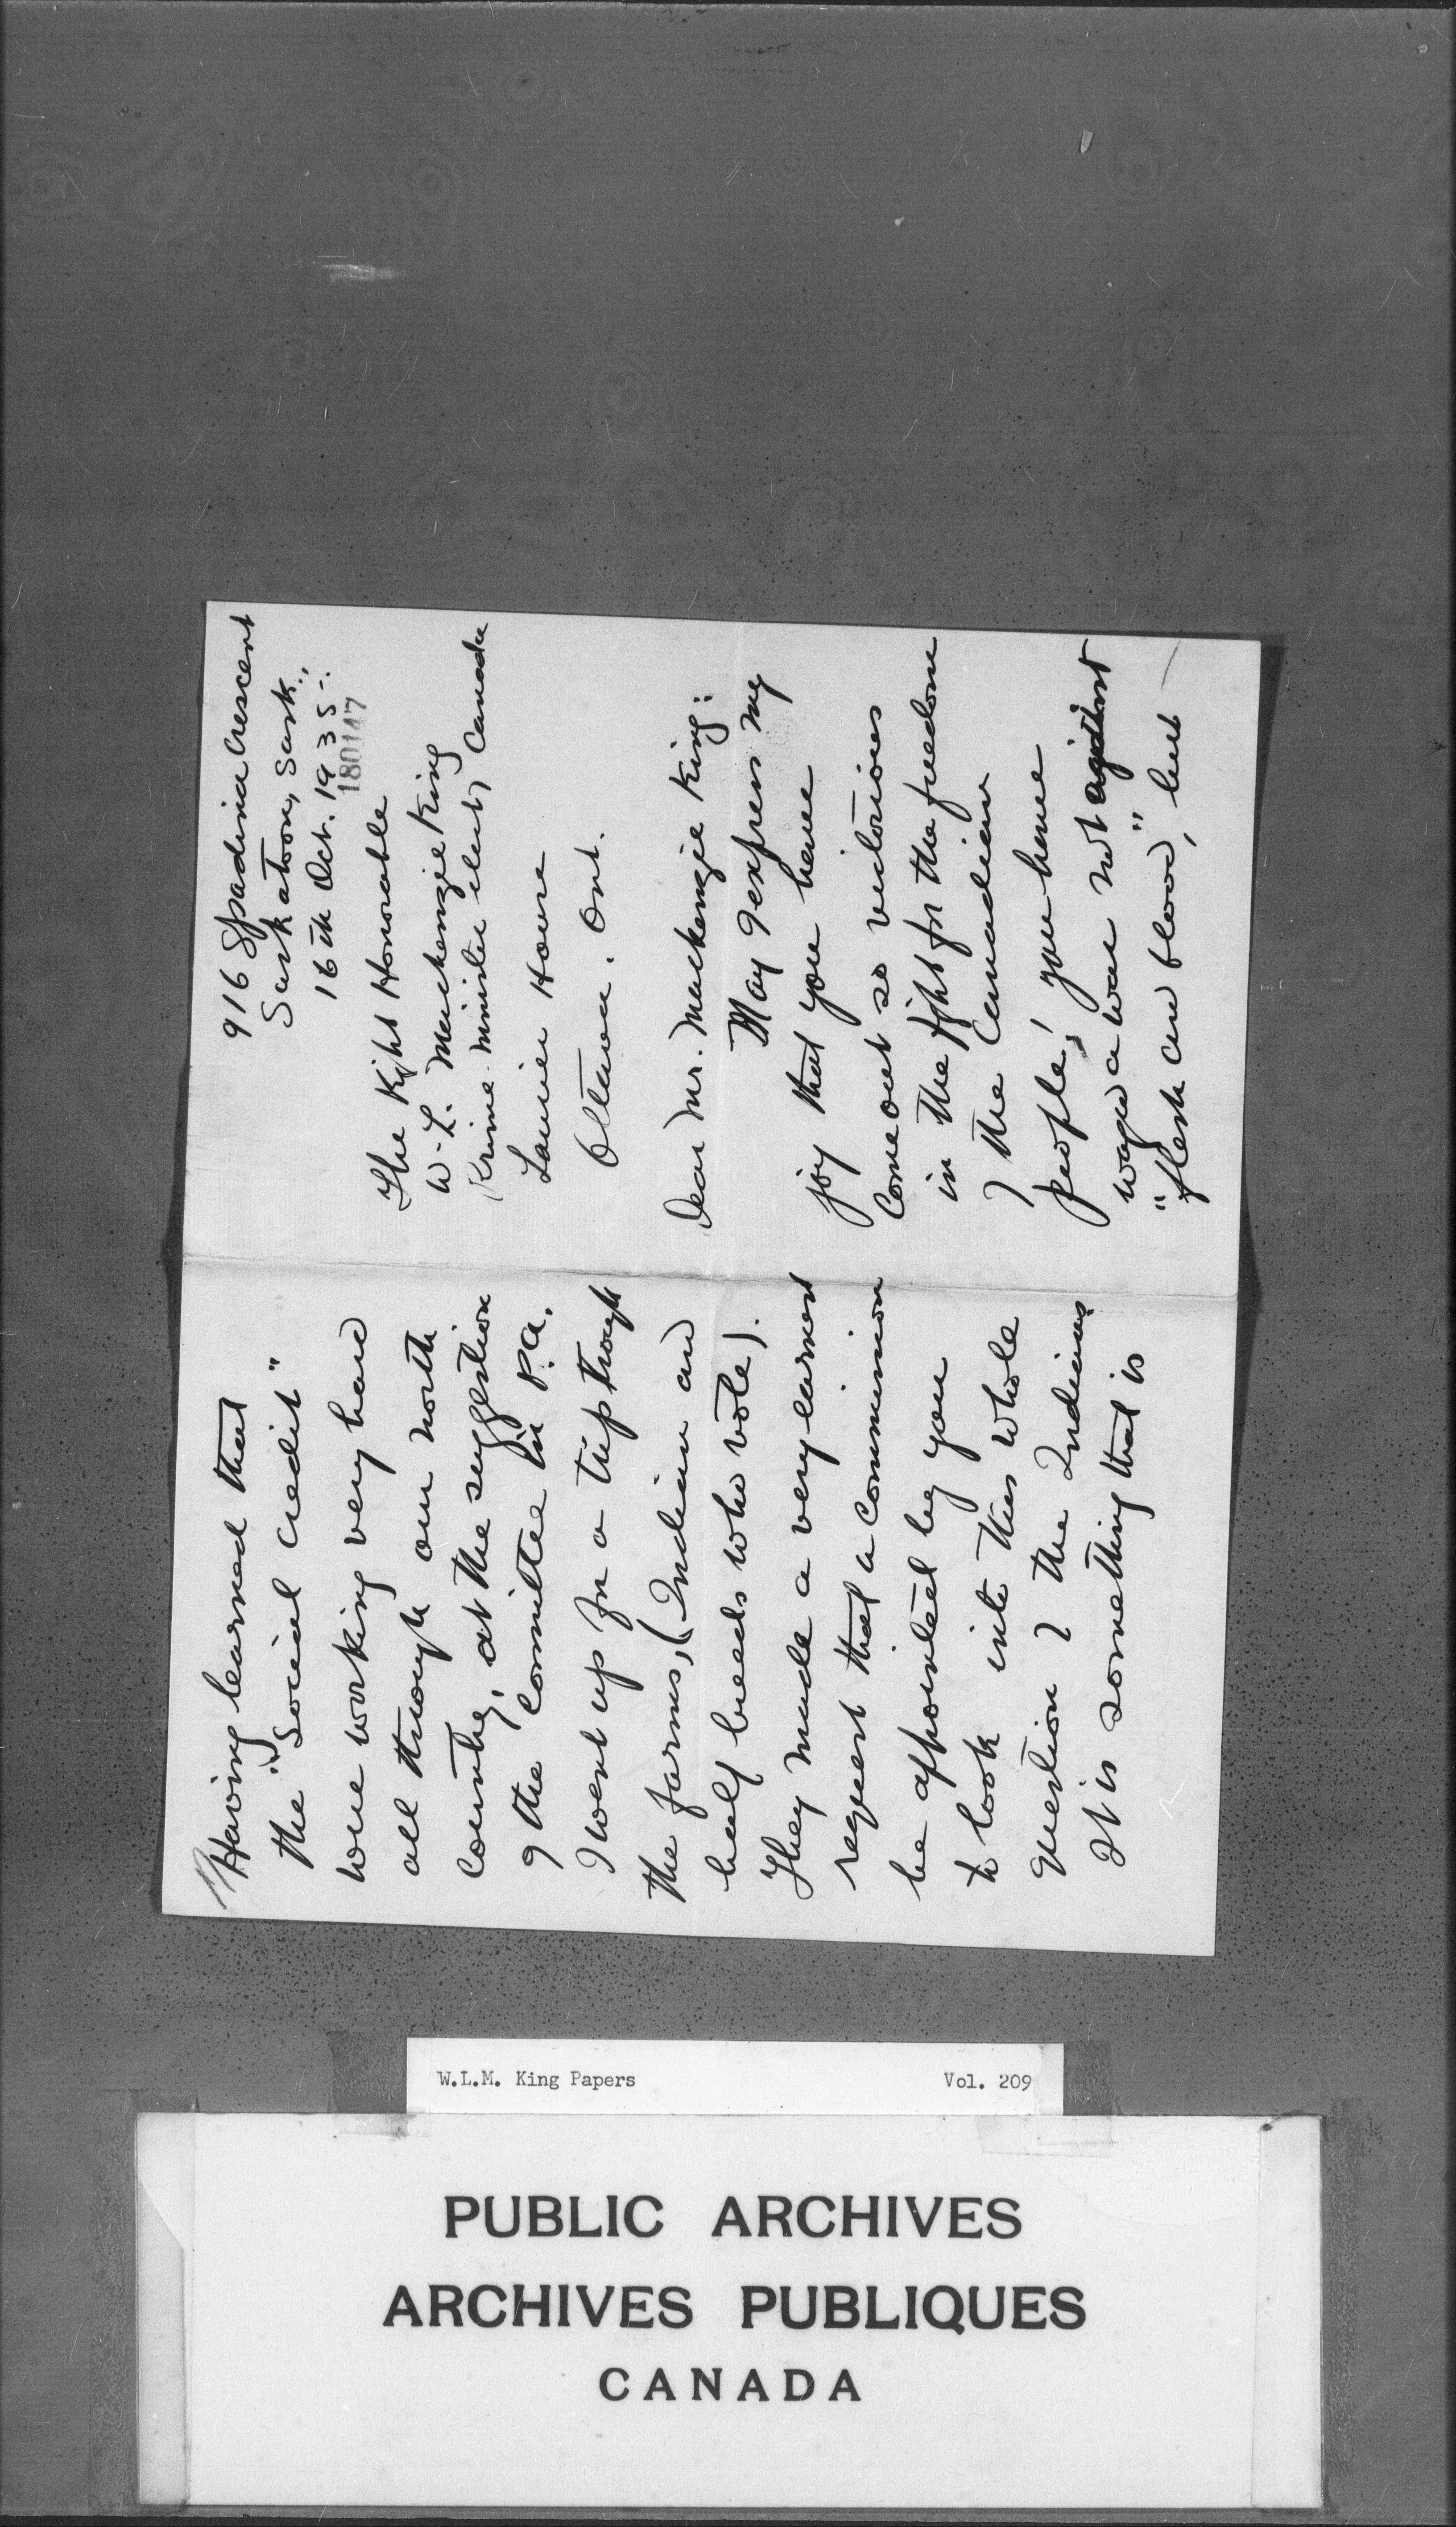 916 Spadina Crescent
Saskatoon, Sask.,
16th Oct. 1935-.
180147
The Right Honorable
W. L. Mackenzie King
Prime Minister elect, Canada
Laurier House
Ottawa. Ont.
Dear Mr. Mackenzie King:
May I express my
joy that you have
come out so victorious
in the fight for the freedom
of the Canadian
people! you have
waged a war not against
"flesh and blood", but
Having learned that
the "Social Credit"
were working very hard
all through our north
country, at the suggestion
of the Committee in P.A.
I went up for a trip through
the farms, (Indian and
half breeds who vote).
They made a very earnest
request that a commission
be appointed by you
to look into this whole
question of the Indians
It is something that is
W.L.M. King Papers Vol. 209
PUBLIC ARCHIVES
ARCHIVES PUBLIQUES
CANADA